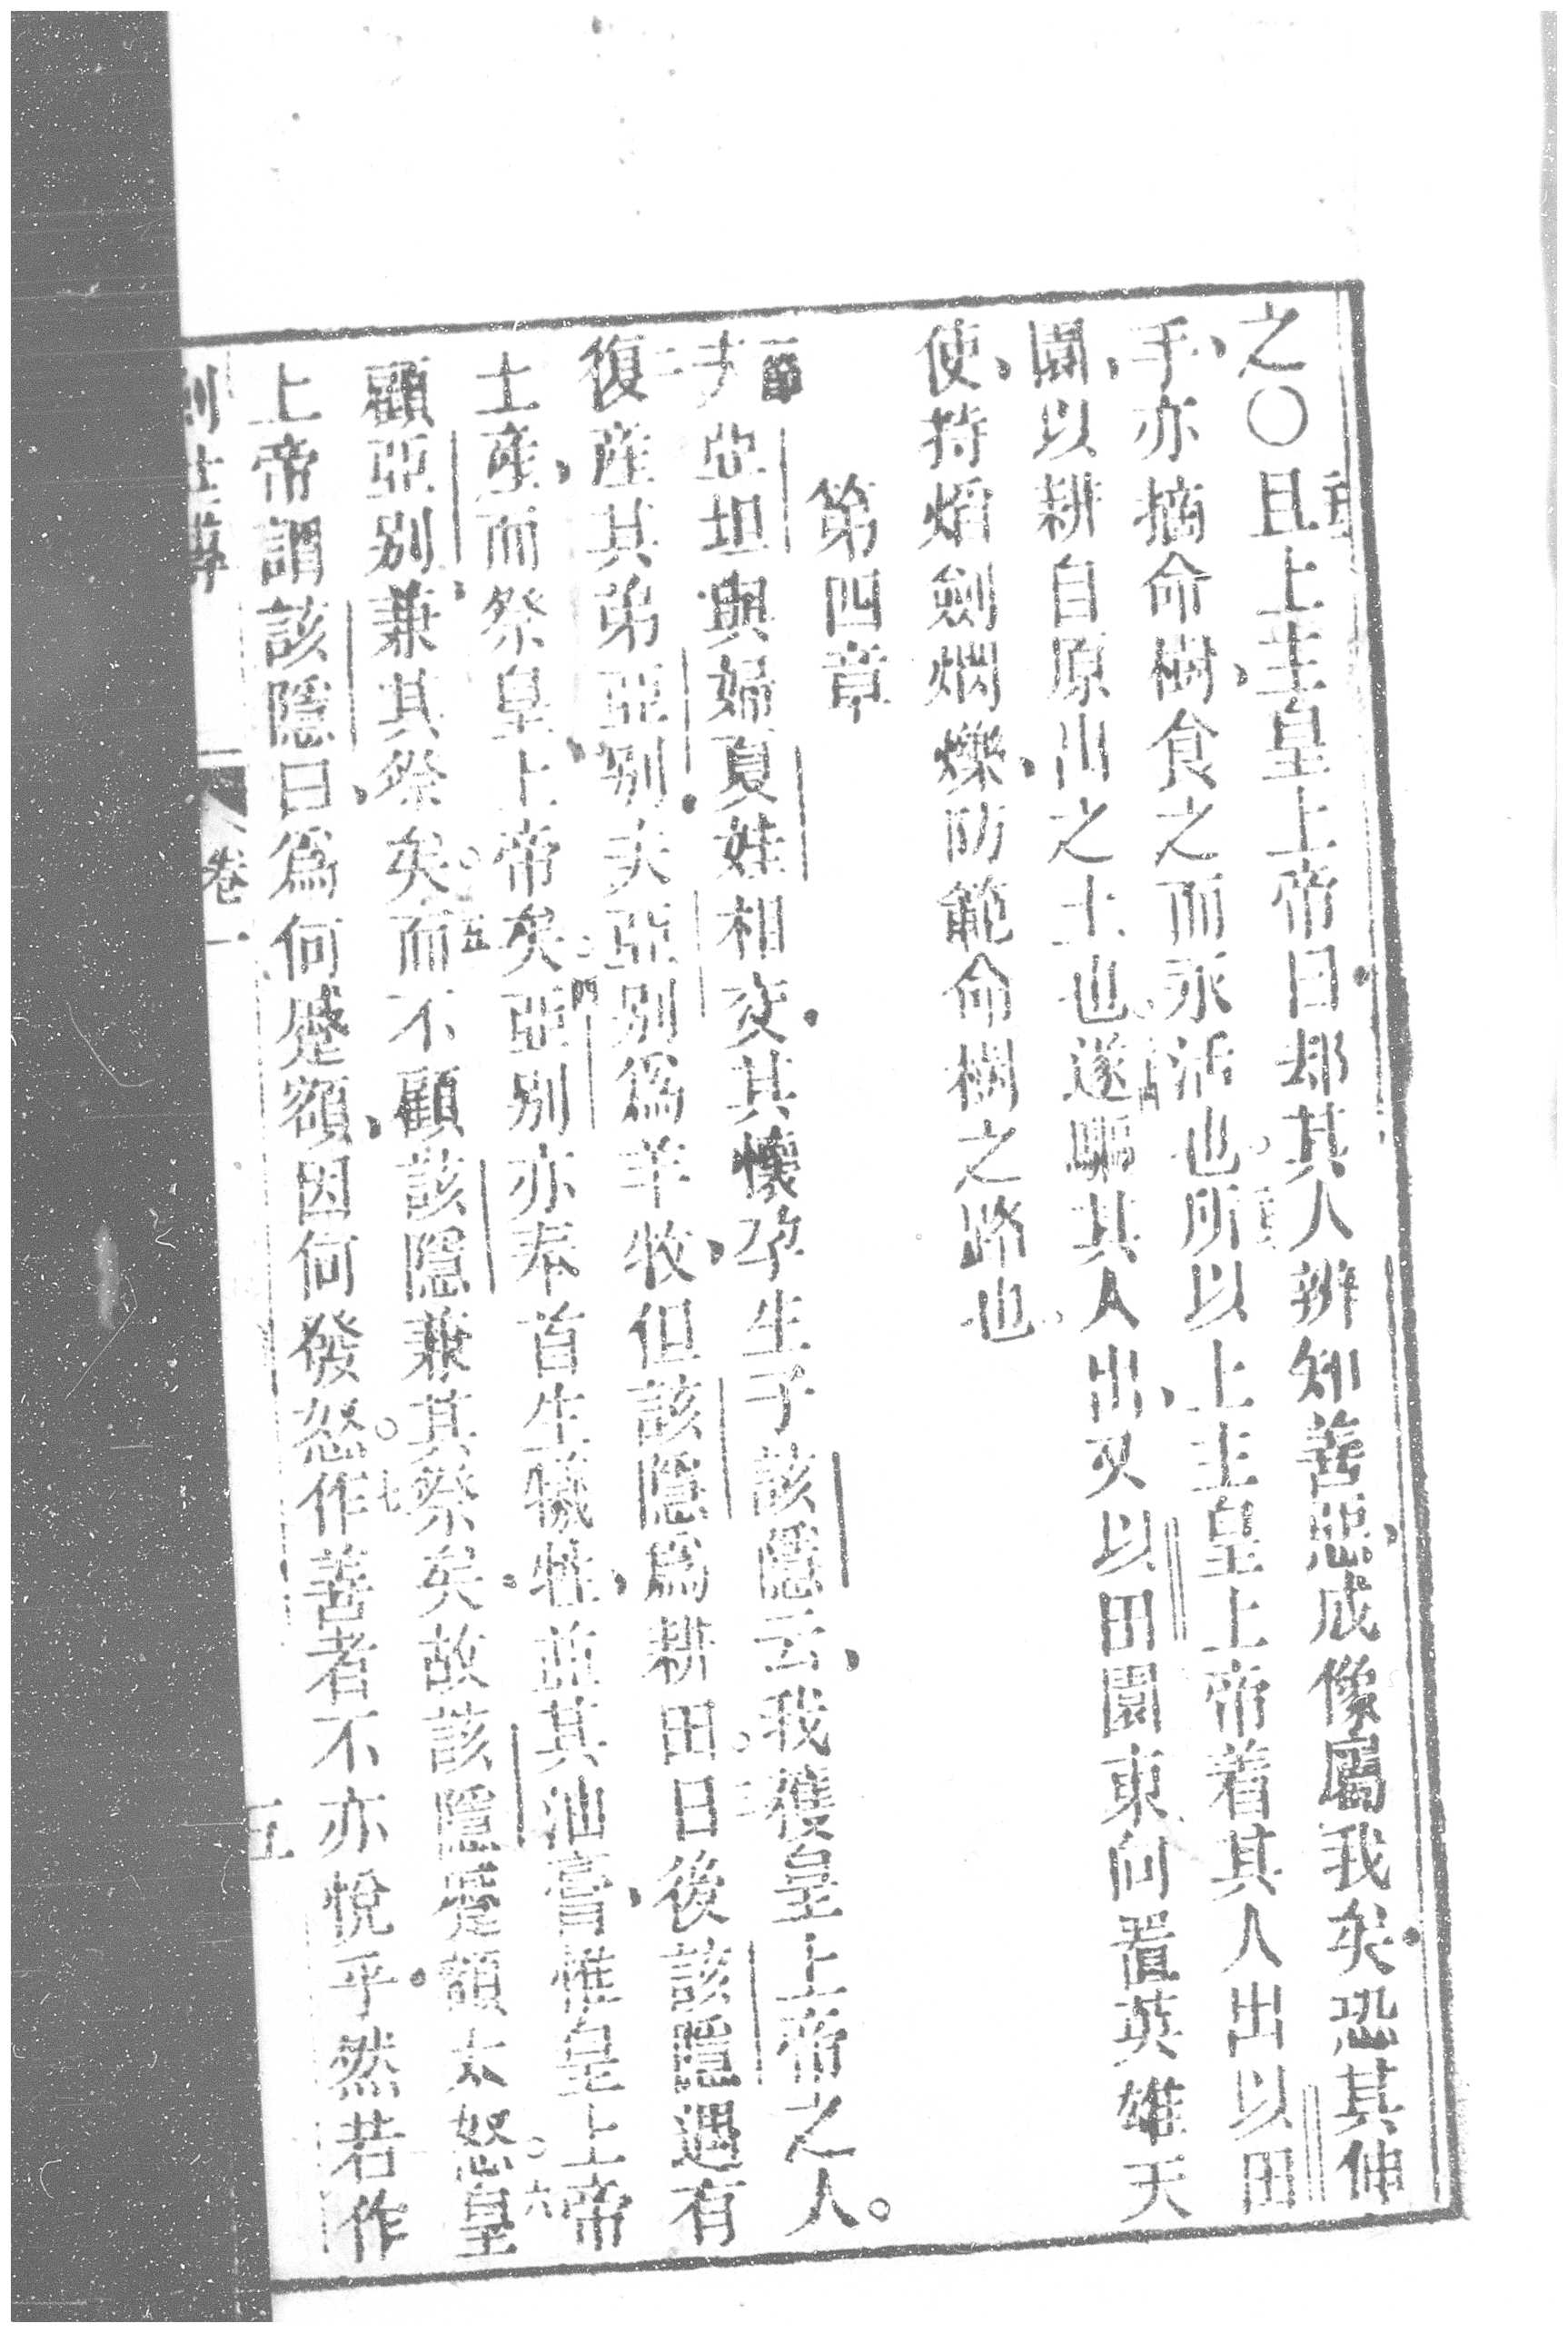 之〇且上主皇上帝曰却其人辨知善惡成像屬我矣恐其伸
手亦摘命樹食之而永活也所以上主皇上帝着其人出以田
園以耕自原出之土也遂驅其人出又以田園東向置英雄天
使持焰劍爓爍防範命樹之路也
第四章
一節
夫亞坦與婦夏娃相交其懷孕生子該隱云我獲皇上帝之人。
二
復產其弟亞別夫亞別為羊牧但該隱為耕田日後該隱遇有
土產而祭皇上帝矣。四亞別亦奉首生犧牲並其油膏惟皇上帝
顧亞別兼其祭矣。五而不顧該隱兼其祭矣故該隱蹙額太怒。六皇
上帝謂該隱曰為何蹙額因何發怒。七作善者不亦悅乎然若作
卷一
五